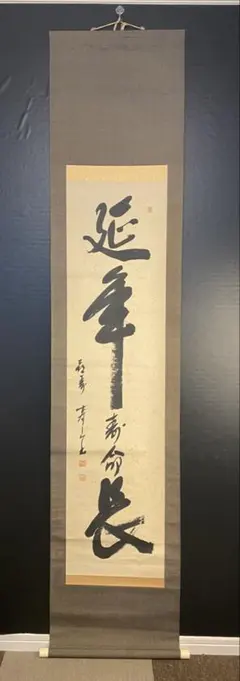 延年寿命長